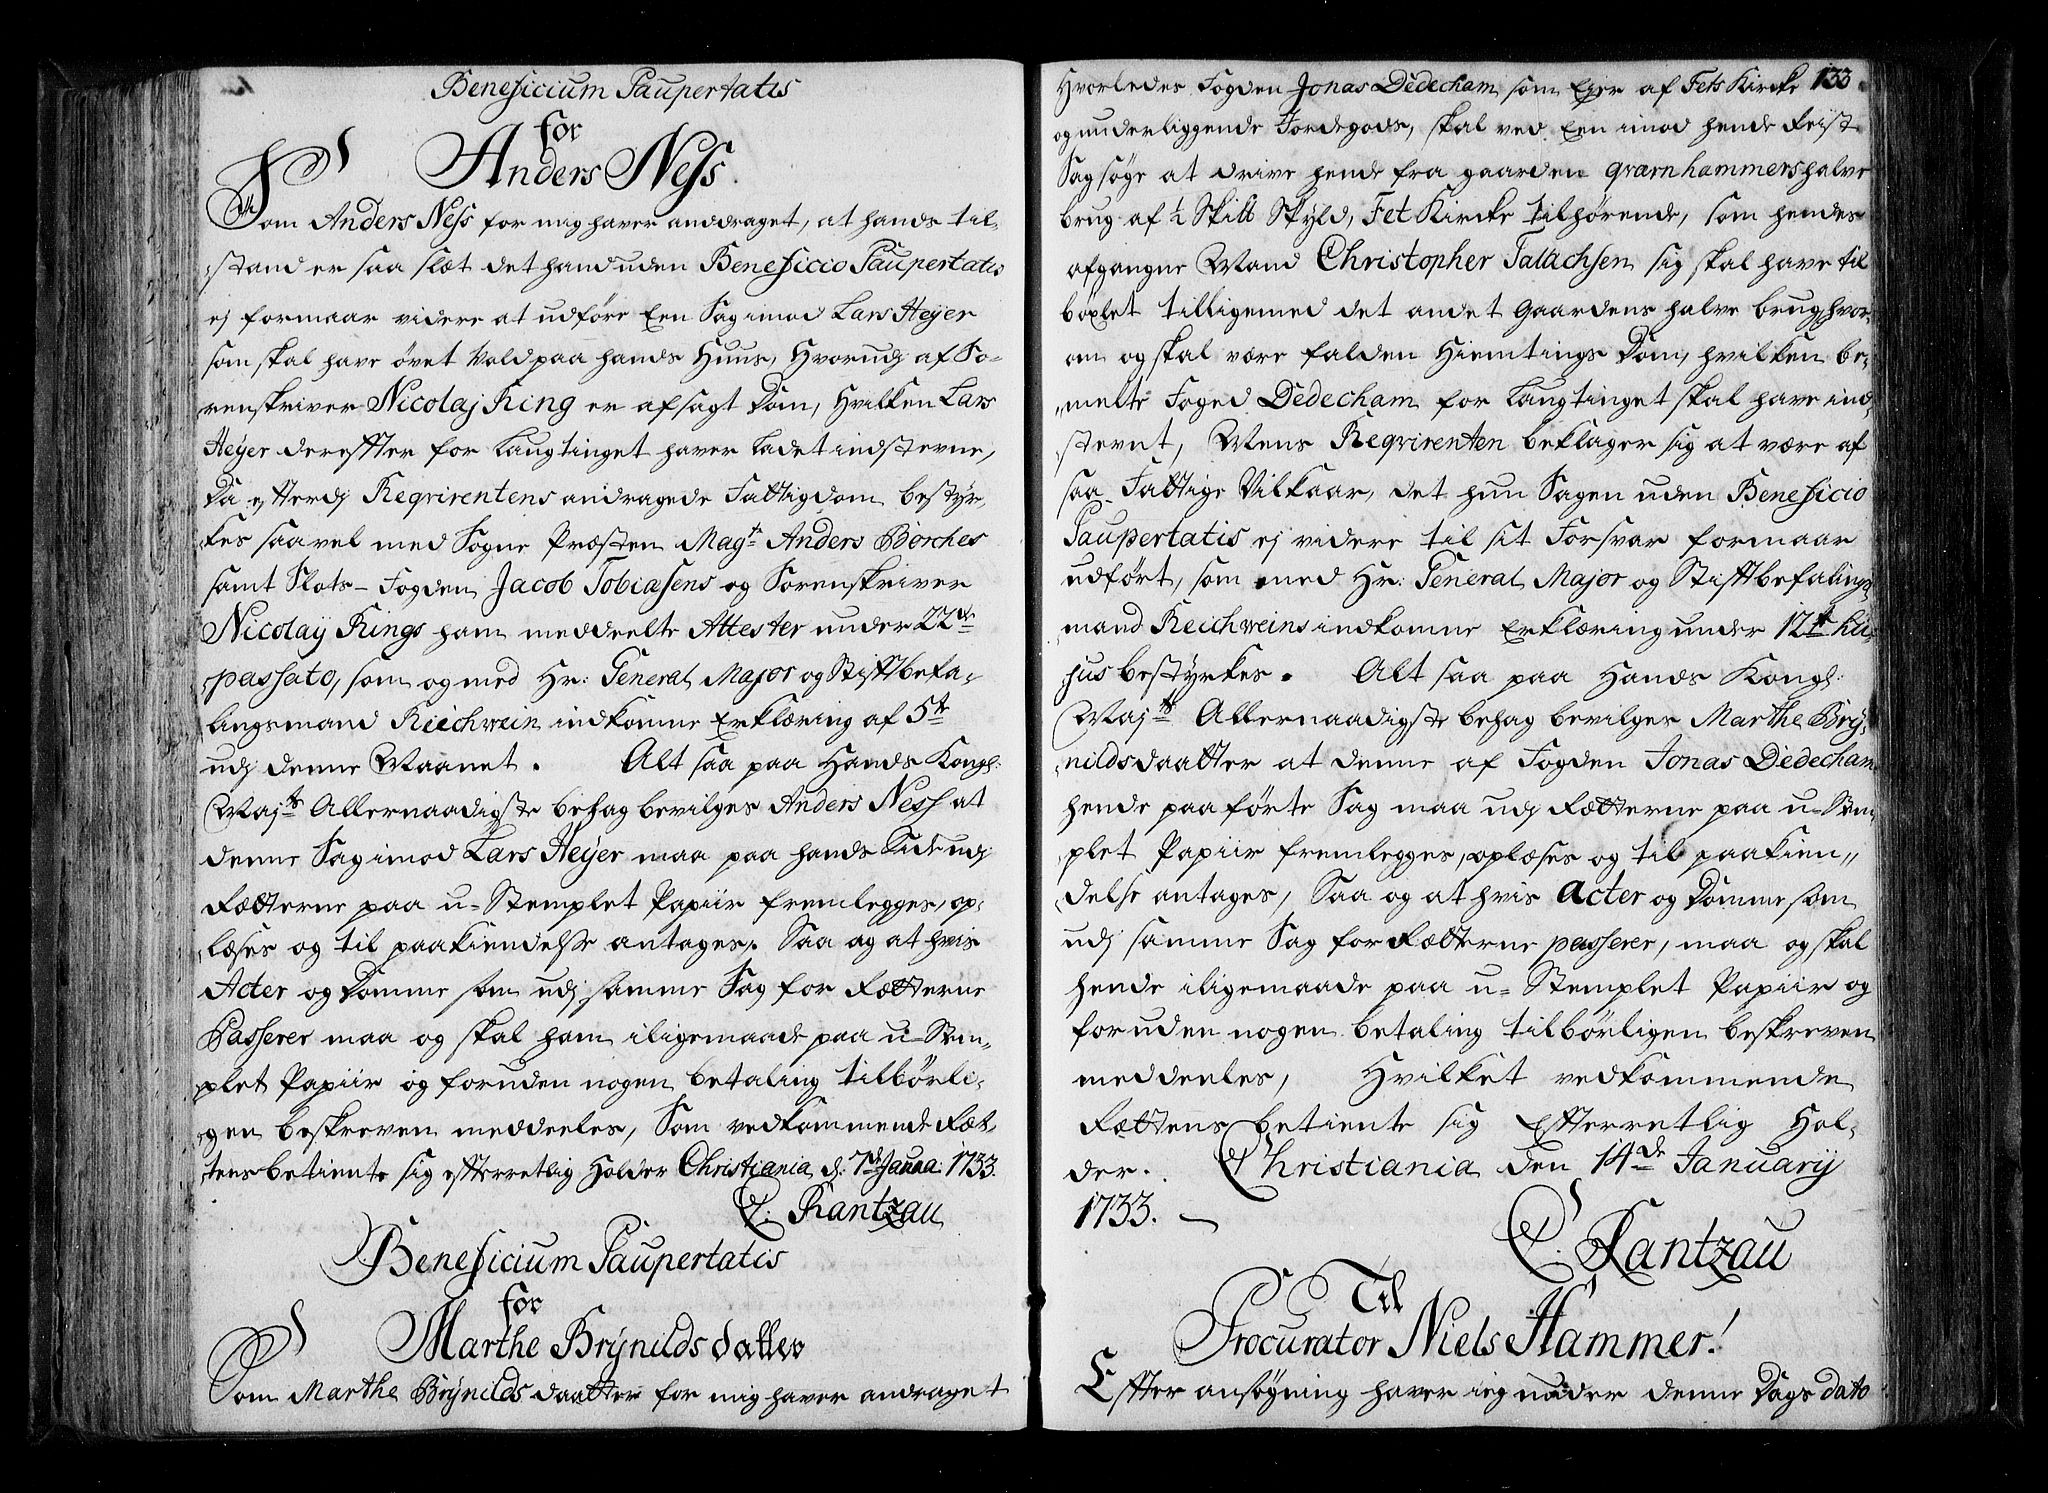 Beneficium Paupertatis
for
Anders Ness.
Som Anders Ness for mig haver anddraget, at hands til-
stand er saa slæt det hand uden Beneficio Paupertatis
ej formaar videre at udføre Een Sag imod Lars Heyer
som skal have øvet Vold paa hands Huus, Hvorudj af So-
renskriver Nicolaj Ring er afsagt Dom, Hvilken Lars
Heyer dereffter for Laugtinget haver ladet indstevne,
Da efterdj Reqvirentens andragede Fattigdom bestyr-
kes saavel med Sogne Præsten Magr Anders Borches
samt Slots-Fogden Jacob Tobiæsens og Sorenskriver
Nicolaÿ Rings ham meddeelte Attester under 22de
passato, som og med Hr: General Major og Stifftbefa-
lingsmand Reichwein indkomne Erklæring af 5te
udj denne Maanet. Alt saa paa Hands Kongl:
Majts Allernaadigste behag bevilges Anders Ness at
denne Sag imod Lars Heyer maa paa hands Side udj
Rætterne paa u-Stemplet Papiir fremlegges, op-
læses og til paakiendelse antages. Saa og at hvis
Acter og Domme som udj samme Sag for Rætterne
Passerer maa og skal ham iligemaade paa u-Stem-
plet Papiir og foruden nogen betaling tilbørli-
gen beskreven meddeeles, Som vedkommende Ræt-
tens betiente sig efterretlig Holder Christiania d: 7de Janua: 1733.
C. Rantzau
Beneficium Paupertatis
for
Marthe Brÿnilds datter
Som Marthe Brÿnilds daatter for mig haver andraget
133
Hvorledes Fogden Jonas Dedecham som Ejer af Fets Kircke
og underliggende Jordegods, skal ved Een imod hende Reist
Sag søge at drive hende fra gaarden qvarnhammers halve
brug af ½ Skill Skÿld, Fet Kircke tilhørende, som hendes
afgangne Mand Christopher Talachsen sig skal have til
bøxlet tilligemed det andet Gaardens halve brug, hvor-
om og skal være falden Hiemtings Dom, hvilken be-
melte Foged Dedecham for Laugtinget skal have ind-
stevnt, Mens Reqvirenten beklager sig at være af
saa Fattige Vilkaar, det hun Sagen uden Beneficio
Paupertatis ej videre til sit Forsvar formaar
udført, som med Hr: General Major og Stifftbefalings
mand Reichweins indkomne Erklæring under 12te hu-
jus bestyrkes. Alt saa paa Hands Kongl:
Majts Allernaadigste behag bevilges Marthe Brÿ-
nildsdaatter at denne af Fogden Jonas Dedecham
hende paaførte Sag maa udj Rætterne paa u-Stem-
plet Papiir fremlegges, oplæses og til paakien-
delse antages, Saa og at hvis Acter og Domme som
udj samme Sag for Rætterne passerer, maa og skal
hende iligemaade paa u-Stemplet Papiir og
foruden nogen betaling tilbørligen beskreven
meddeeles, Hvilket vedkommende
Rættens betiente sig Efterretlig Hol-
der. Christiania den 14de Januarÿ
1733.
C. Rantzau
Til
Procurator Niels Hammer!
Effter ansøgning haver ieg under denne Dags dato